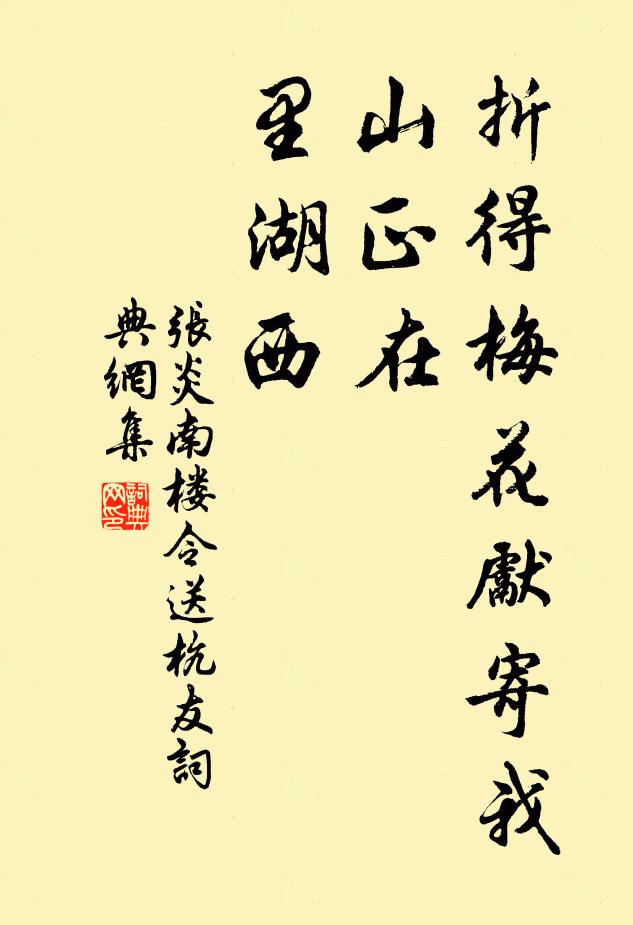 折得梅花獻寄我
山正在
里湖西
張炎南楼令送杭友詞
典網集
詞典
网印